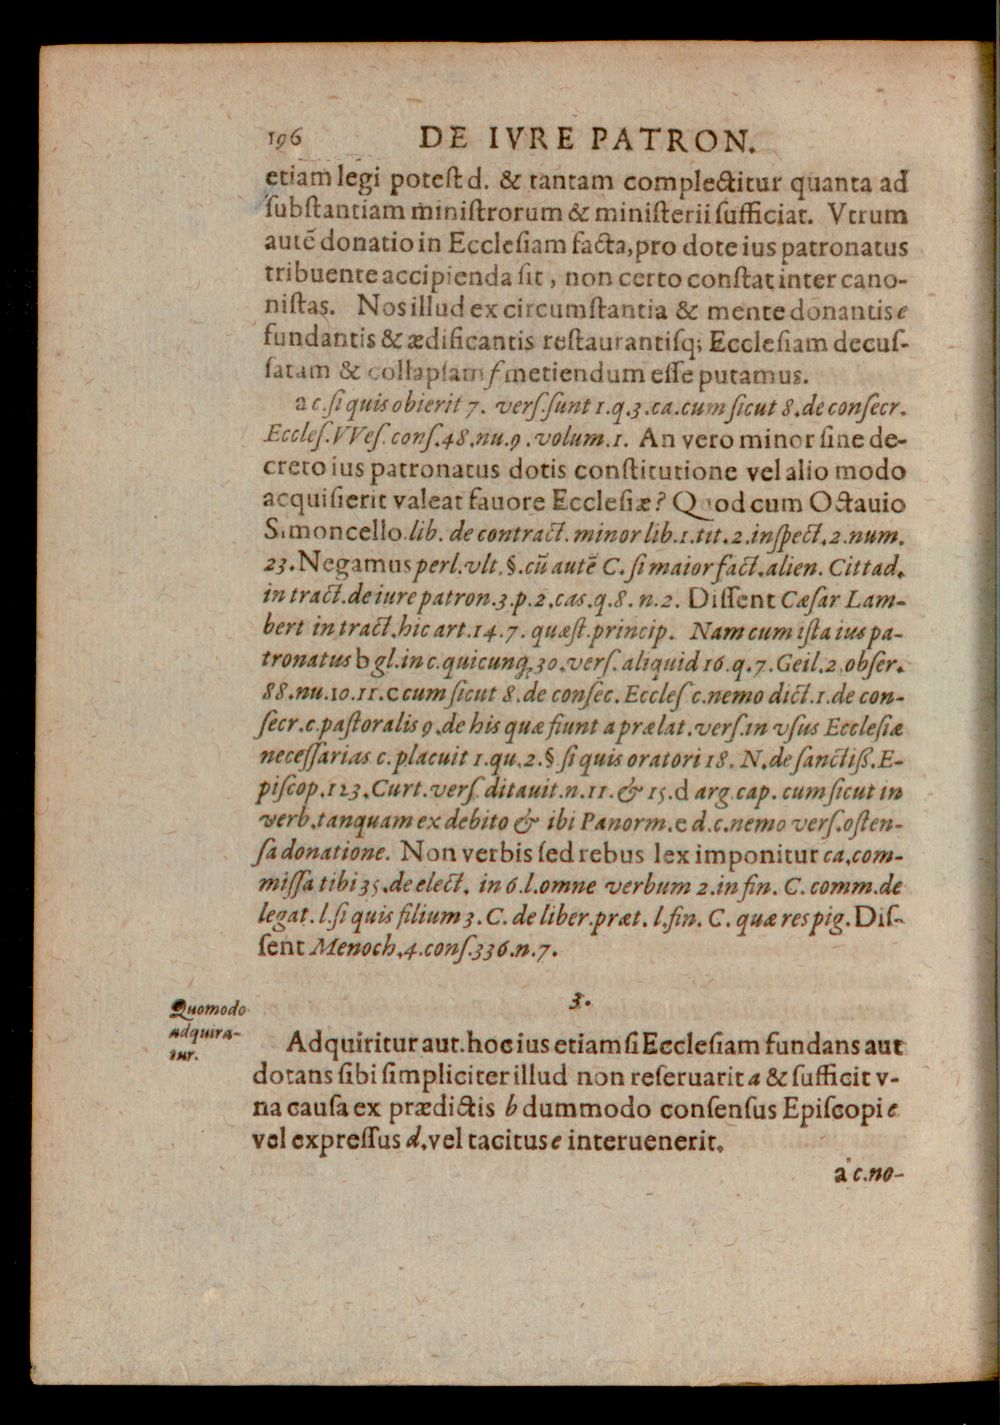 196 DE IVRE PATRON.
etiam legi potest d. & tantam complectitur quanta ad
substantiam ministrorum & ministerii sufficiat. Vtrum
autē donatio in Ecclesiam facta, pro dote ius patronatus
tribuente accipienda sit, non certo constat inter cano-
nistas. Nos illud ex circumstantia & mente donantis e
fundantis & ædificantis restaurantisq; Ecclesiam decus-
satam & collapsam f metiendum esse putamus.
a c. si quis obierit 7. vers. sunt 1. q. 3. ca. cum sicut 8. de consecr.
Eccles. VVes. cons. 48. nu. 9. volum. 1. An vero minor sine de-
creto ius patronatus dotis constitutione vel alio modo
acquisierit valeat favore Ecclesiæ? Quod cum Octauio
Simoncello lib. de contract. minor lib. 1. tit. 2. inspect. 2. num.
23. Negamus per l. vlt. §. cū autē C. si maior fact. alien. Cittad.
in tract. de iure patron. 3. p. 2. cas. q. 8. n. 2. Dissent Cæsar Lam-
bert in tract. hic art. 14. 7. quæst. princip. Nam cum ista ius pa-
tronatus b gl. in c. quicunq; 30. vers. aliquid 16. q. 7. Geil. 2. obser.
88. nu. 10. 11. c cum sicut 8. de consec. Eccles c. nemo dict. 1. de con-
secr. c. pastoralis 9. de his quæ fiunt a prælat. vers. in vsus Ecclesiæ
necessarias c. placuit 1. qu. 2. § si quis oratori 18. N. de sanctiß. E-
piscop. 123. Curt. vers. ditauit. n. 11. & 15. d arg cap. cum sicut in
verb. tanquam ex debito & ibi Panorm. e d. c. nemo vers. osten-
sa donatione. Non verbis sed rebus lex imponitur ca. com-
missa tibi 35. de elect. in 6. l. omne verbum 2. in fin. C. comm. de
legat. l. si quis filium 3. C. de liber. præt. l. fin. C. quæ res pig. Dis-
sent Menoch. 4. cons. 336. n. 7.
3.
Quomodo
adquira-
tur.
Adquiritur aut. hoc ius etiam si Ecclesiam fundans aut
dotans sibi simpliciter illud non reseruarit a & sufficit v-
na causa ex prædictis b dummodo consensus Episcopi c
vel expressus d. vel tacitus e interuenerit.
a c. no-